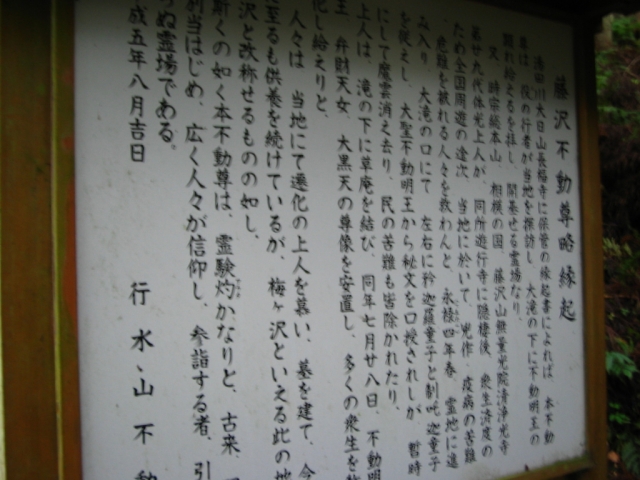 藤沢不動尊略縁起
湯田川大日山長福寺に保管の縁起書によれば、本不動
尊は、役の行者が当地を探訪し、大滝の下に不動明王の
顕れ給えるを拝し、開基せる霊場なり。
又、時宗総本山、相模の国、藤沢山無量光院清浄光寺
第廿九代体光上人が、同所遊行寺に隠棲後、衆生済度の
ため全国周遊の途次、当地に於いて、兇作、疫病の苦難
、危難を救れる人々を救わんと、永禄四年春、霊地に進
み入り、大滝の口にて、左右に矜迦羅童子と制吒迦童子
を従えし、大聖不動明王から秘文を口授されしが、暫時
にして魔雲消え去り、民の苦難も皆除かれたり。
上人は、滝の下に草庵を結び、同年七月廿八日、不動明
王、弁財天女、大黒天の尊像を安置し、多くの衆生を
化し給えりと。
人々は、当地にて遷化の上人を慕い、墓を建て、今
至るも供養を続けているが、梅ヶ沢といえる此の地
沢と改称せるものの如し。
斯くの如く本不動尊は、霊験灼かなりと、古来、
別当はじめ、広く人々が信仰し、参詣する者、引
ぬ霊場である。
成五年八月吉日
行水山不動